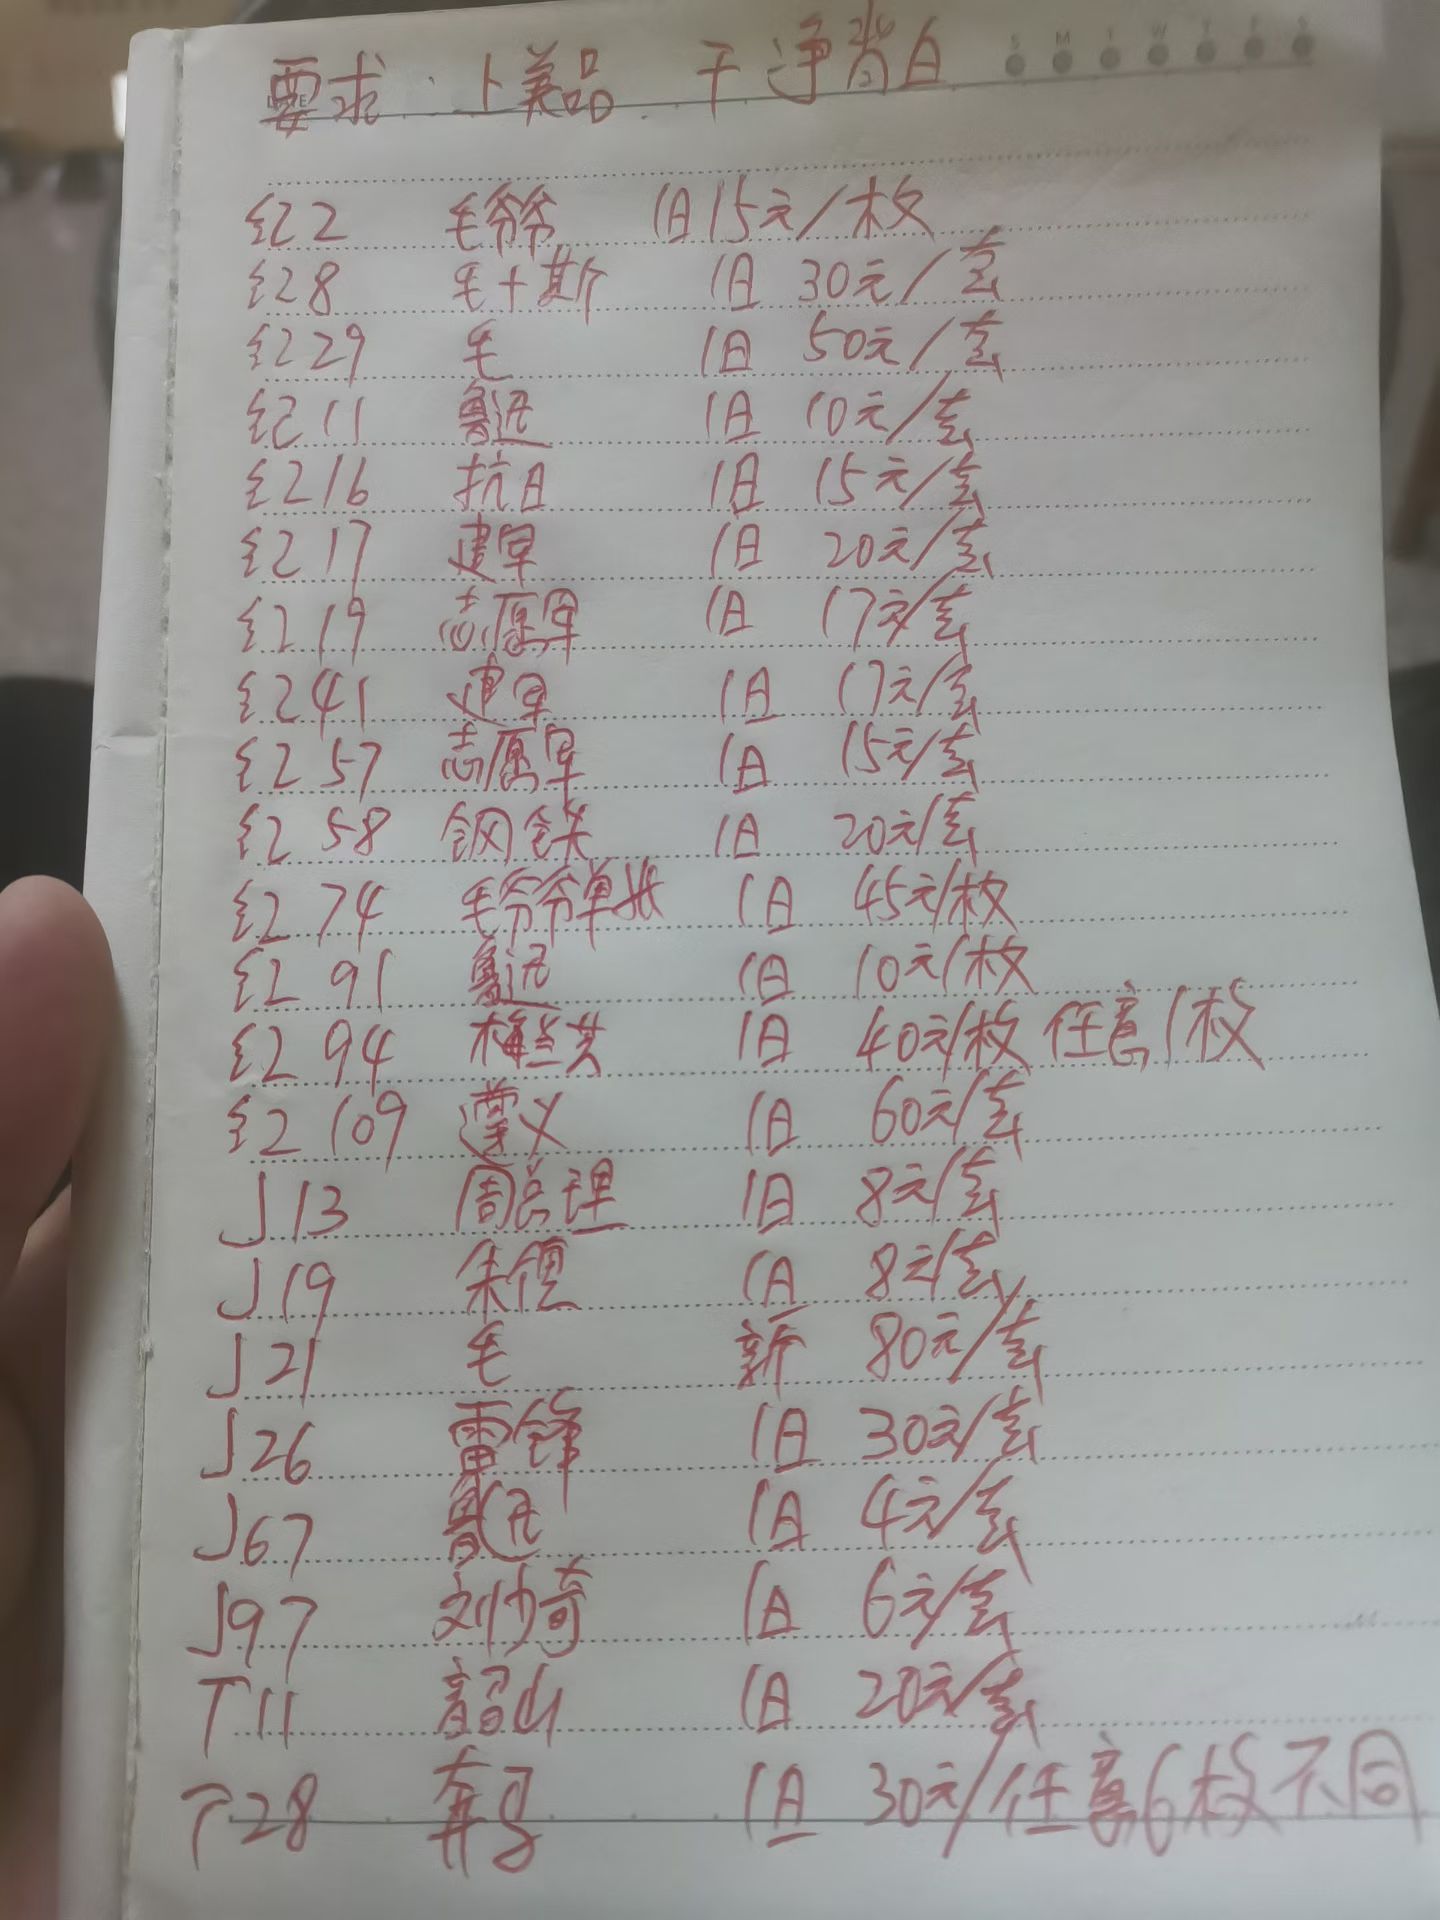 要求：上美品．干净背白
S M T W T F S
纪2 毛爷爷 旧15元/枚
纪8 毛+斯 旧 30元/套
纪29 毛 旧 50元/套
纪11 鲁迅 旧 10元/套
纪16 抗日 旧 15元/套
纪17 建军 旧 20元/套
纪19 志愿军 旧 17元/套
纪41 建军 旧 17元/套
纪57 志愿军 旧 15元/套
纪58 钢铁 旧 20元/套
纪74 毛爷爷单枚 旧 45元/枚
纪91 鲁迅 旧 10元/枚
纪94 梅兰芳 旧 40元/枚 任意1枚
纪109 遵义 旧 60元/套
J13 周总理 旧 8元/套
J19 朱德 旧 8元/套
J21 毛 新 80元/套
J26 雷锋 旧 30元/套
J67 鲁迅 旧 4元/套
J97 刘少奇 旧 6元/套
T11 韶山 旧 20元/套
T28 奔马 旧 30元/任意6枚不同